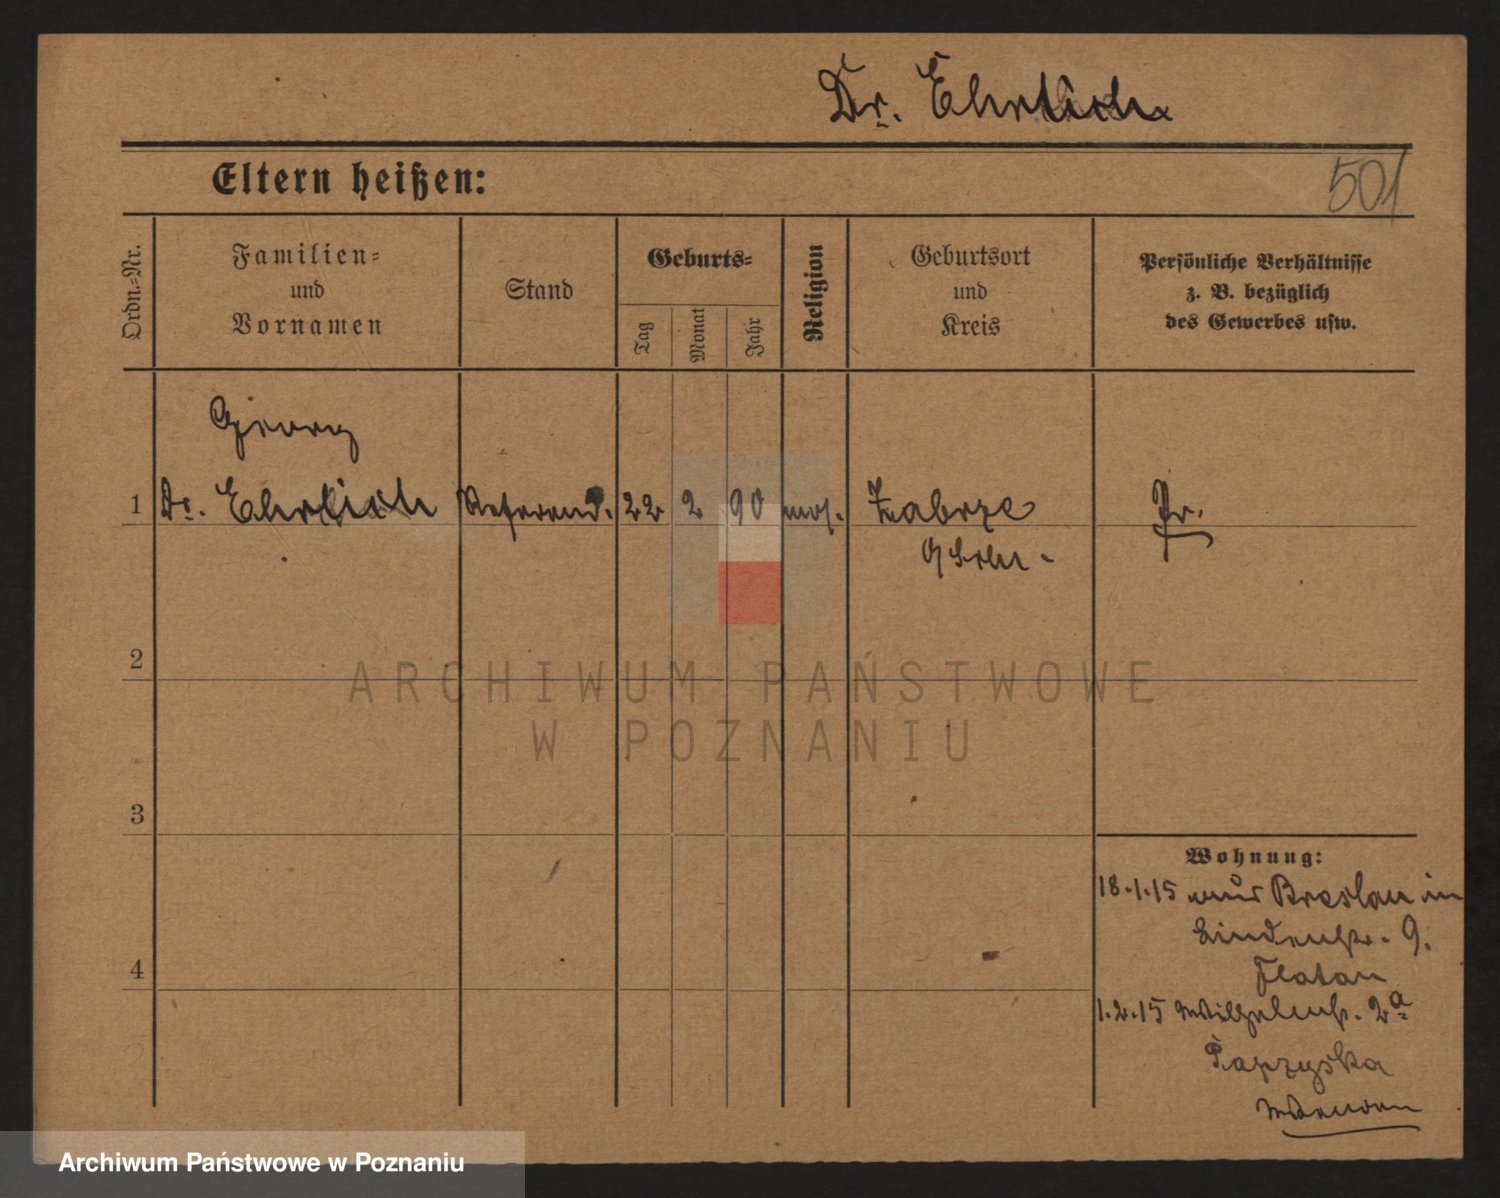 Dr. Ehrlich
501
Eltern heißen:
Ordn.-Nr.
Familien-
und
Vornamen
Stand
Geburts-
Tag
Monat
Jahr
Religion
Geburtsort
und
Kreis
Persönliche Verhältnisse
z. B. bezüglich
des Gewerbes usw.
Georg
1 Dr. Ehrlich Referend. 22 2 90 mos. Zabrze Pr.
2
3
4
Wohnung:
18.1.15 aus Breslau in
Lindenstr. 9.
Flatau
1.2.15 Wilhelmstr. 2a
Paprzycka
ARCHIWUM PAŃSTWOWE
W POZNANIU
Archiwum Państwowe w Poznaniu